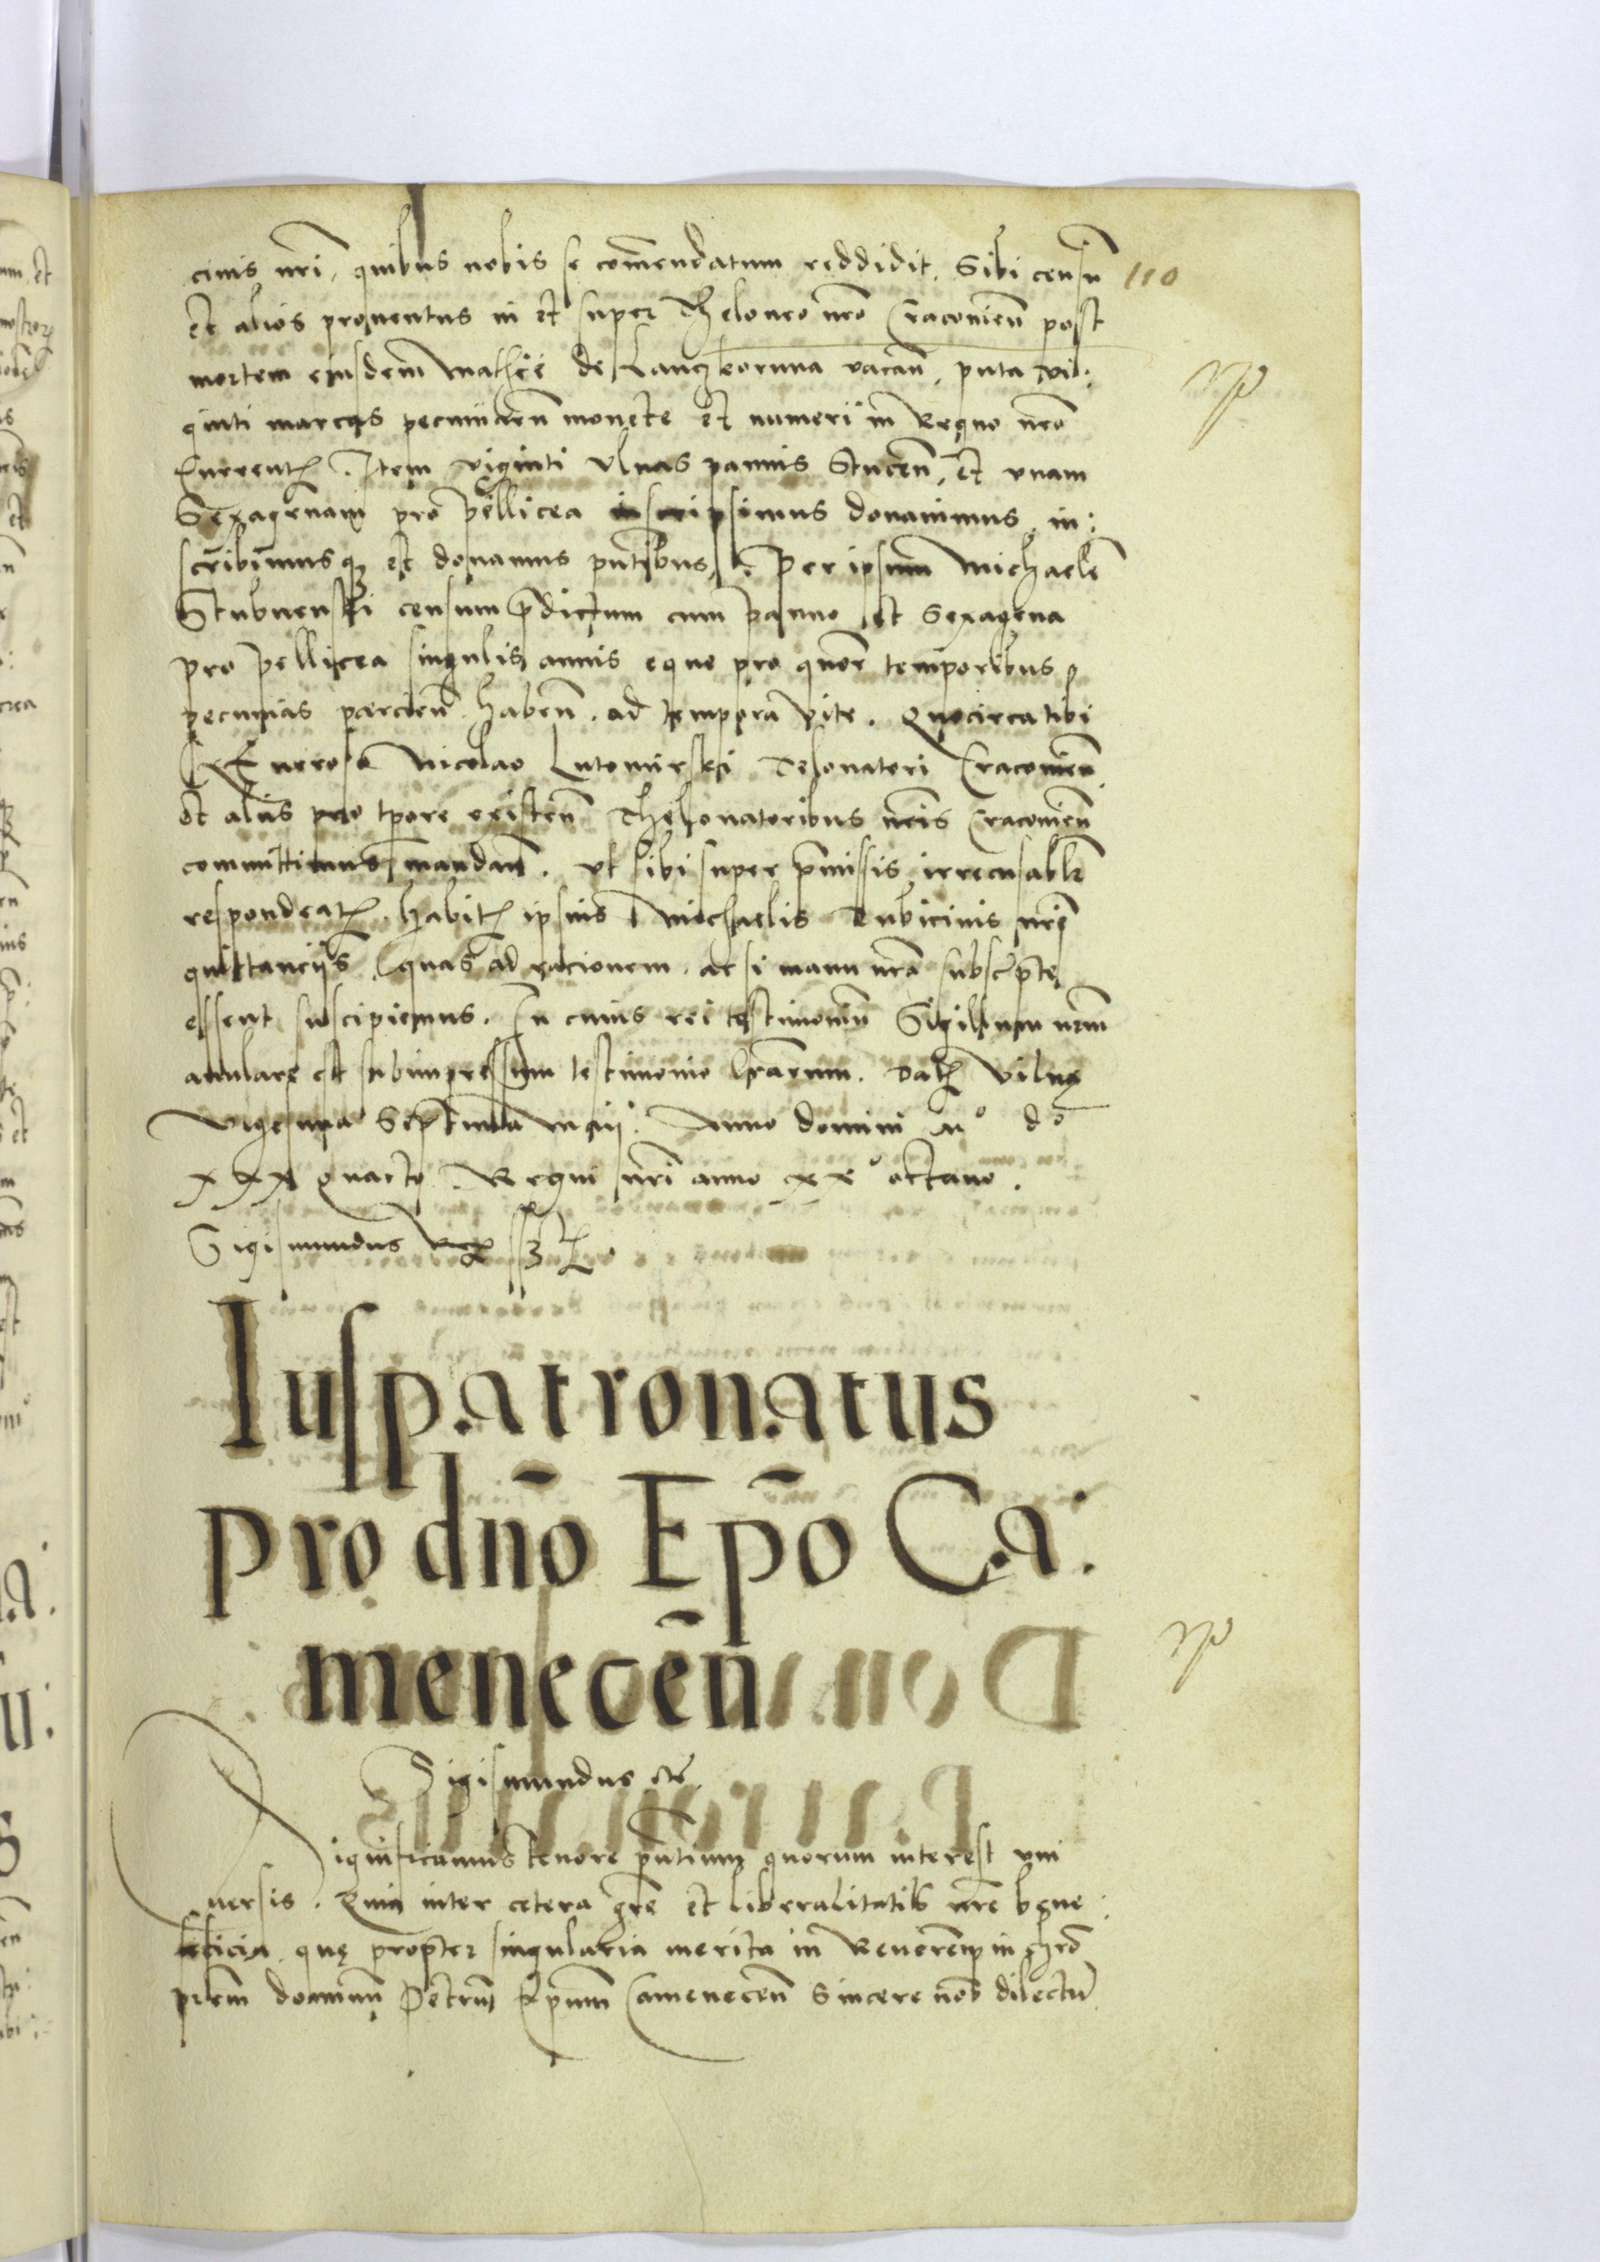 cinis nri, quibus nobis se comendatum reddidit. Sibi censū 110
et alios proventus in et super Theloneo nro Cracovien̄ post
mortem eiusdem Mathie de vacan̄, puta vi:
ginti marcas pecuniarū monete et numeri in Regno nro
Currentꝭ. Item viginti Ulnas pannis Stucen̄, et unam
Sexagenam pro pellicea inscripsimus donavimus, in:
scribimusqꝫ et donamus pn̄tibus, Per ipsum Michaelē
Stubnenski censum p̄dictum cum panno et Sexagena
pro pellicea singulis annis eque pro quor temporibus
pecunias parcien̄ haben̄. ad tempora vite. Quocirca tibi
Generoso Nicolao Lutomirski Telonatori Cracovien̄
et aliis pro tp̄ore existen̄ Thelonatoribus nr̄is Cracovien̄
committimus mandam̄. Ut sibi super p̄missis irrecusablr
respondeatꝭ. habitꝭ ipsius Michaelis Tubicinis nr̄i
quittanciis. quas ad racionem. ac si manu nr̄a subscrpte
essent suscipiemus. In cuius rei testimoniū Sigillum nrm̄
annulare est subimpressum testimonio lr̄arum. Datꝭ Vilnę
Vigesima Septima Maii. Anno domini Mº dº
XXX quarto. Regni nr̄i anno XXº octavo.
Sigismundus Rex sszt
Iuspatronatus
pro dn̄o Ep̄o Ca:
menecen̄
Sigismundus etc̄
Significamus tenore pn̄tium quorum interest uni
versis. Quia inter cetera gr̄e et liberalitatis nr̄e bene:
ficia. quę propter singularia merita in Reverendū in chr̄o
pr̄em dominū Petrum Ep̄um Camenecen̄ Sincere nob̄ dilectū